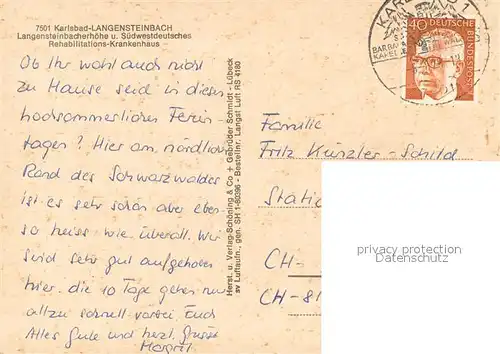 7501 Karlsbad-LANGENSTEINBACH
Langensteinbacherhöhe u. Südwestdeutsches
Rehabilitations-Krankenhaus
Ob Ihr wohl auch nicht
zu Hause seid in diesen
hochsommerlichen Ferien-
tagen? Hier am nördlichen
Rand des Schwarzwaldes
ist es sehr schön aber eben-
so heiss wie überall. Wir
sind sehr gut aufgehoben
hier. die 10 Tage gehen nur
allzu schnell vorbei. Euch
Alles Gute und herzl. Grüsse
Margrit
Herst. u. Verlag Schöning & Co + Gebrüder Schmidt - Lübeck
sv Luftaufn., gen. SH 1-80396 - Bestellnr. Langst Luft RS 4180
KARLSBAD 1
40
DEUTSCHE BUNDESPOST
Familie
Fritz Künzler-Schild
Statio
CH-
CH-81
persönlicher
Datenschutz